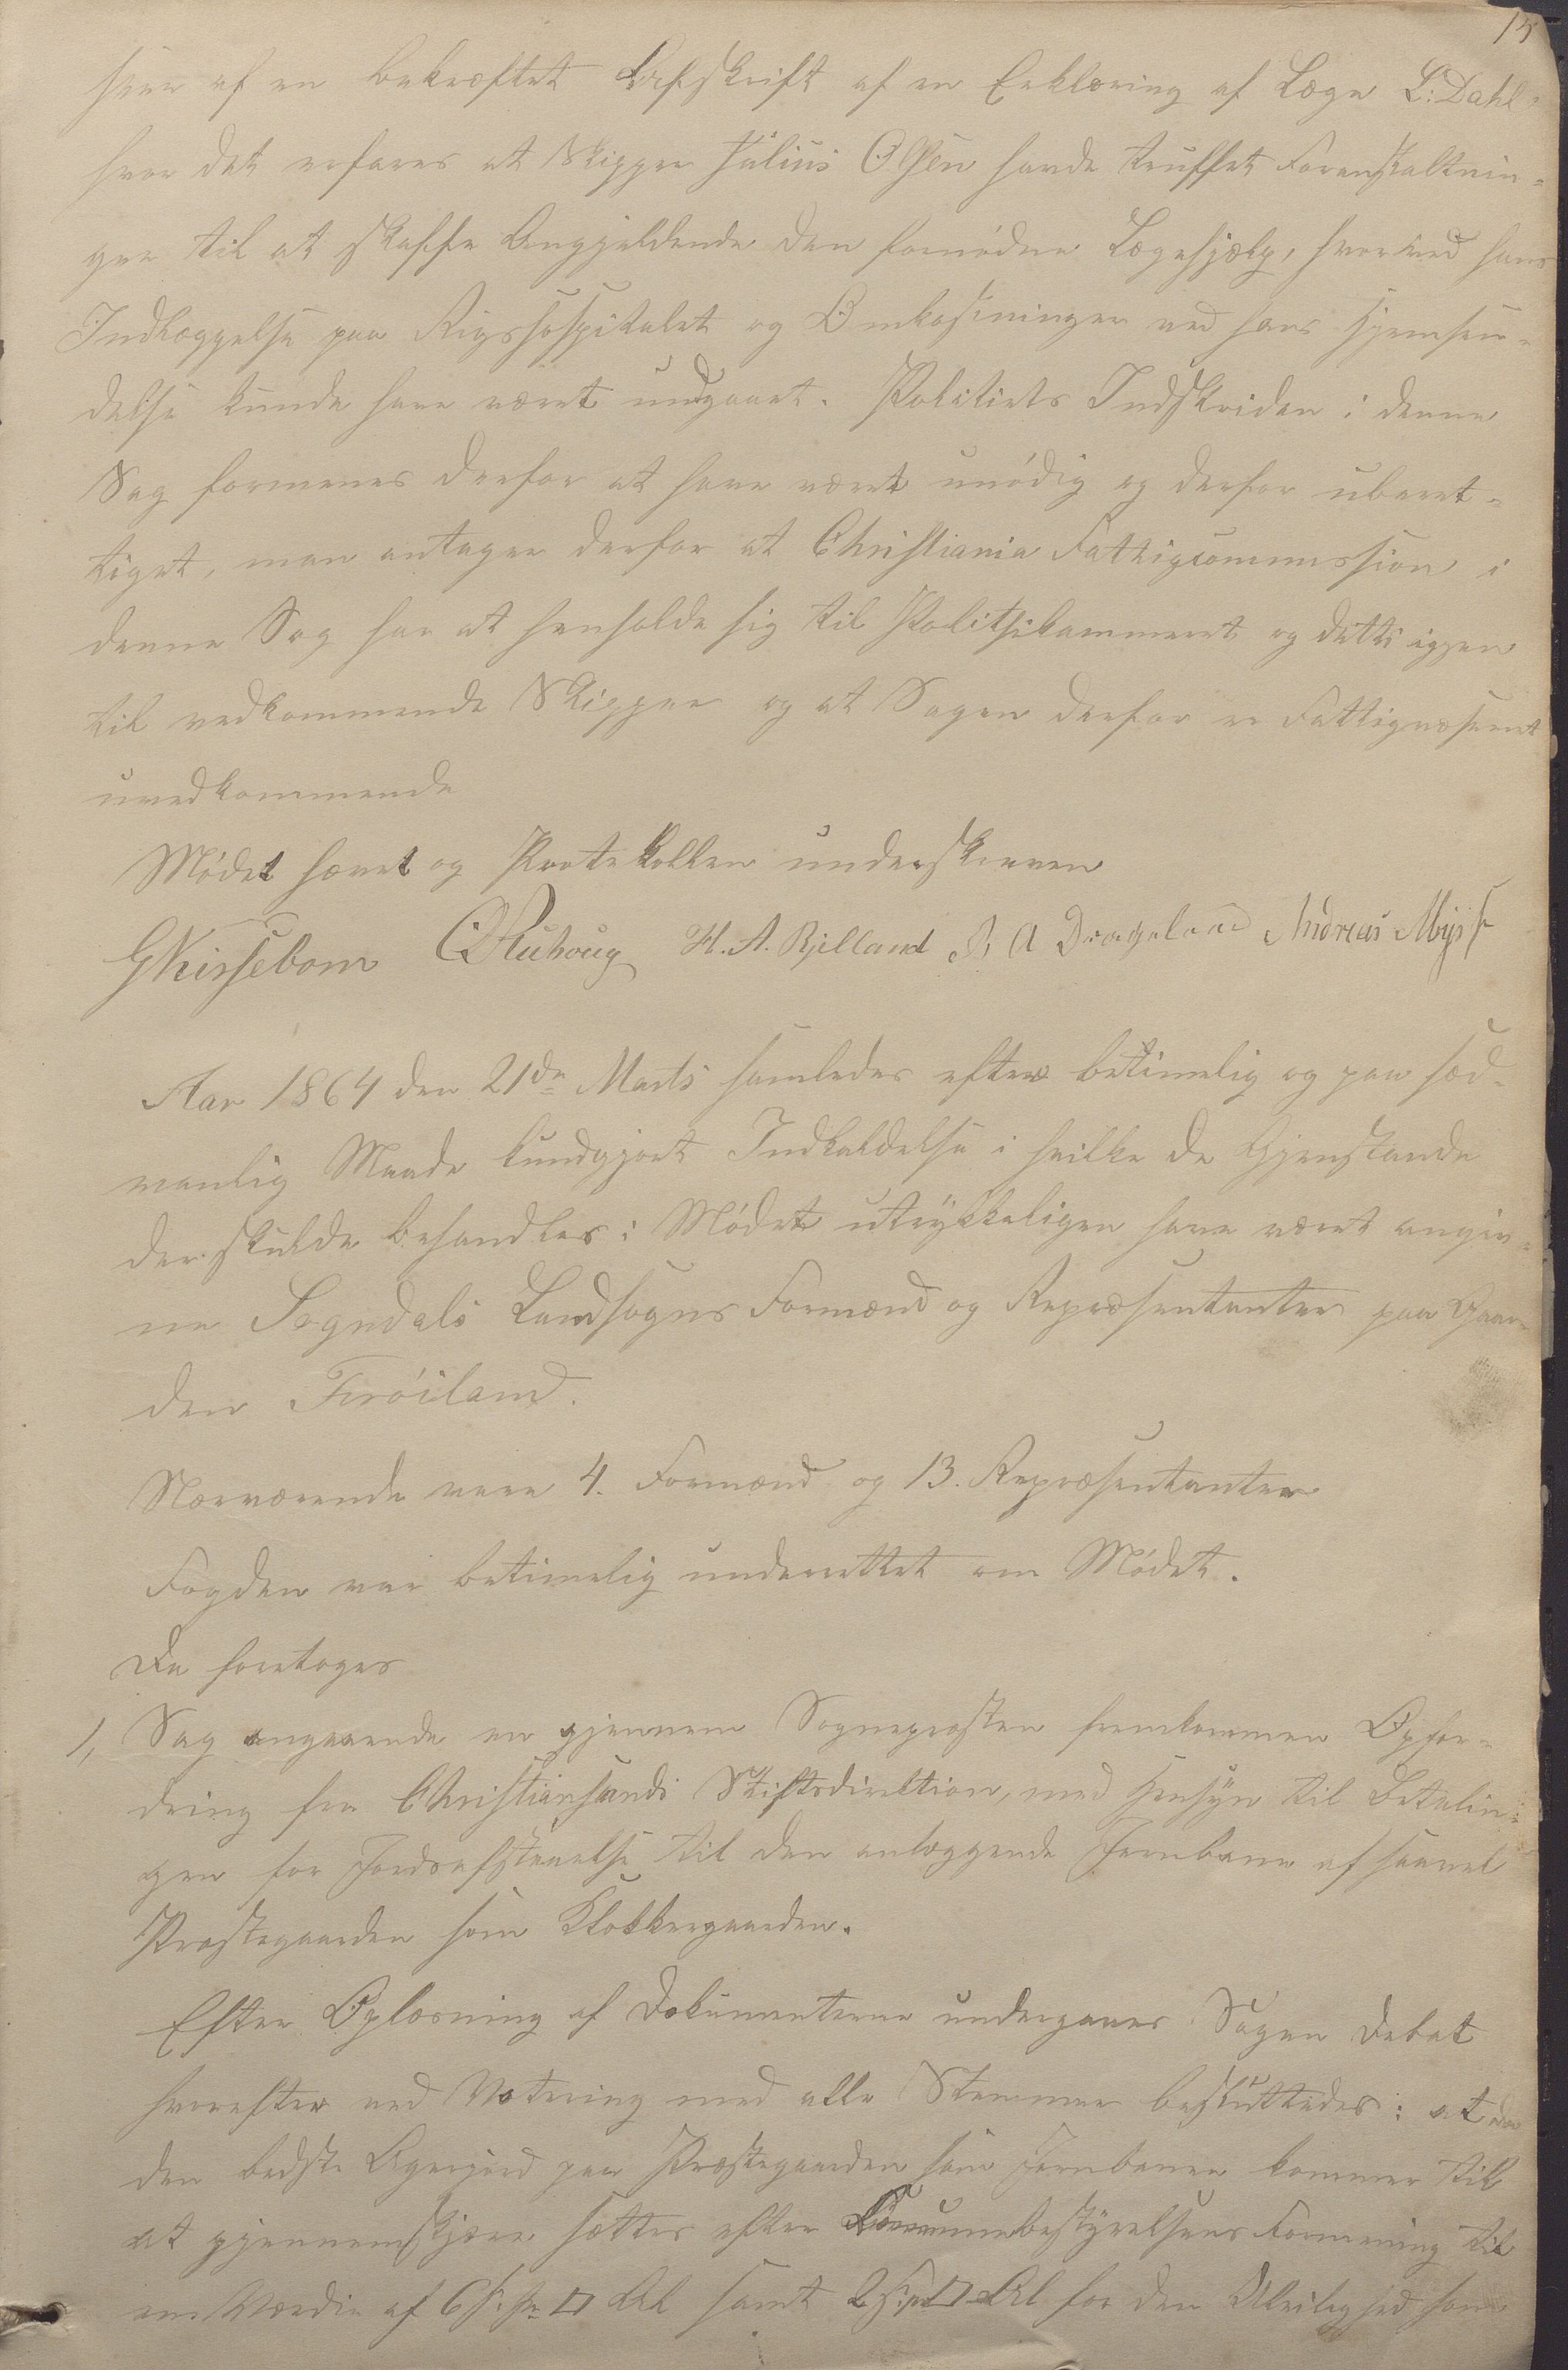 15
hver af en bekræftet Afskrift af en Erklæring af Læge L: Dahl,
hvor det erfares at Skipper Julius Olsen havde truffet Foranstaltnin-
ger til at skaffe Angjeldende den fornødne Lægehjælp, hvorved hans
Indlæggelse paa Rigshospitalet og Omkostninger ved hans Hjemsen-
delse kunde have været undgaaet. Politiets Indskriden i denne
Sag formenes derfor at have været unødig og derfor uberet-
tiget, man antager derfor at Christiania Fattigcommission i
denne Sag har at henholde sig til Politikammeret og dette igjen
til vedkommende Skipper og at Sagen derfor er Fattigvæsenet
uvedkommende
Mødet hævet og Protokollen underskreven
G Kirsebom H. A. Bjelland A Drageland Andreas
Aar 1864 den 21de Marts samledes efter betimelig og paa sæd-
vanlig Maade kundgjort Indkaldelse i hvilke de Gjenstande
der skulde behandles i Mødet utrykkeligen have været angiv-
ne Sogndals Landsogns Formænd og Repræsentanter paa Gaar-
den Frøiland.
Nærværende vare 4. Formænd og 13. Repræsentanter
Fogden var betimelig underrettet om Mødet.
Da foretoges
1, Sag angaaende en gjennem Sognepresten fremkommen Opfor-
dring fra Christiansands Stiftsdirektion, med Hensyn til Betalin-
gen for Jordafstaaelse til den anlæggende Jernbane af saavel
Præstegaarden som Klokkergaarden.
Efter Oplæsning af Dokumenterne undergaves Sagen Debat
hvorefter ved Votering med alle Stemmer besluttedes: at da
den bedste Agerjord paa Præstegaarden som Jernbanen kommer til
at gjennemskjære sættes efter Communebestyrelsens Formening til
en Værdie af 6 s: pr □ Al samt 2 s: pr □ Al for den Uleilighed som